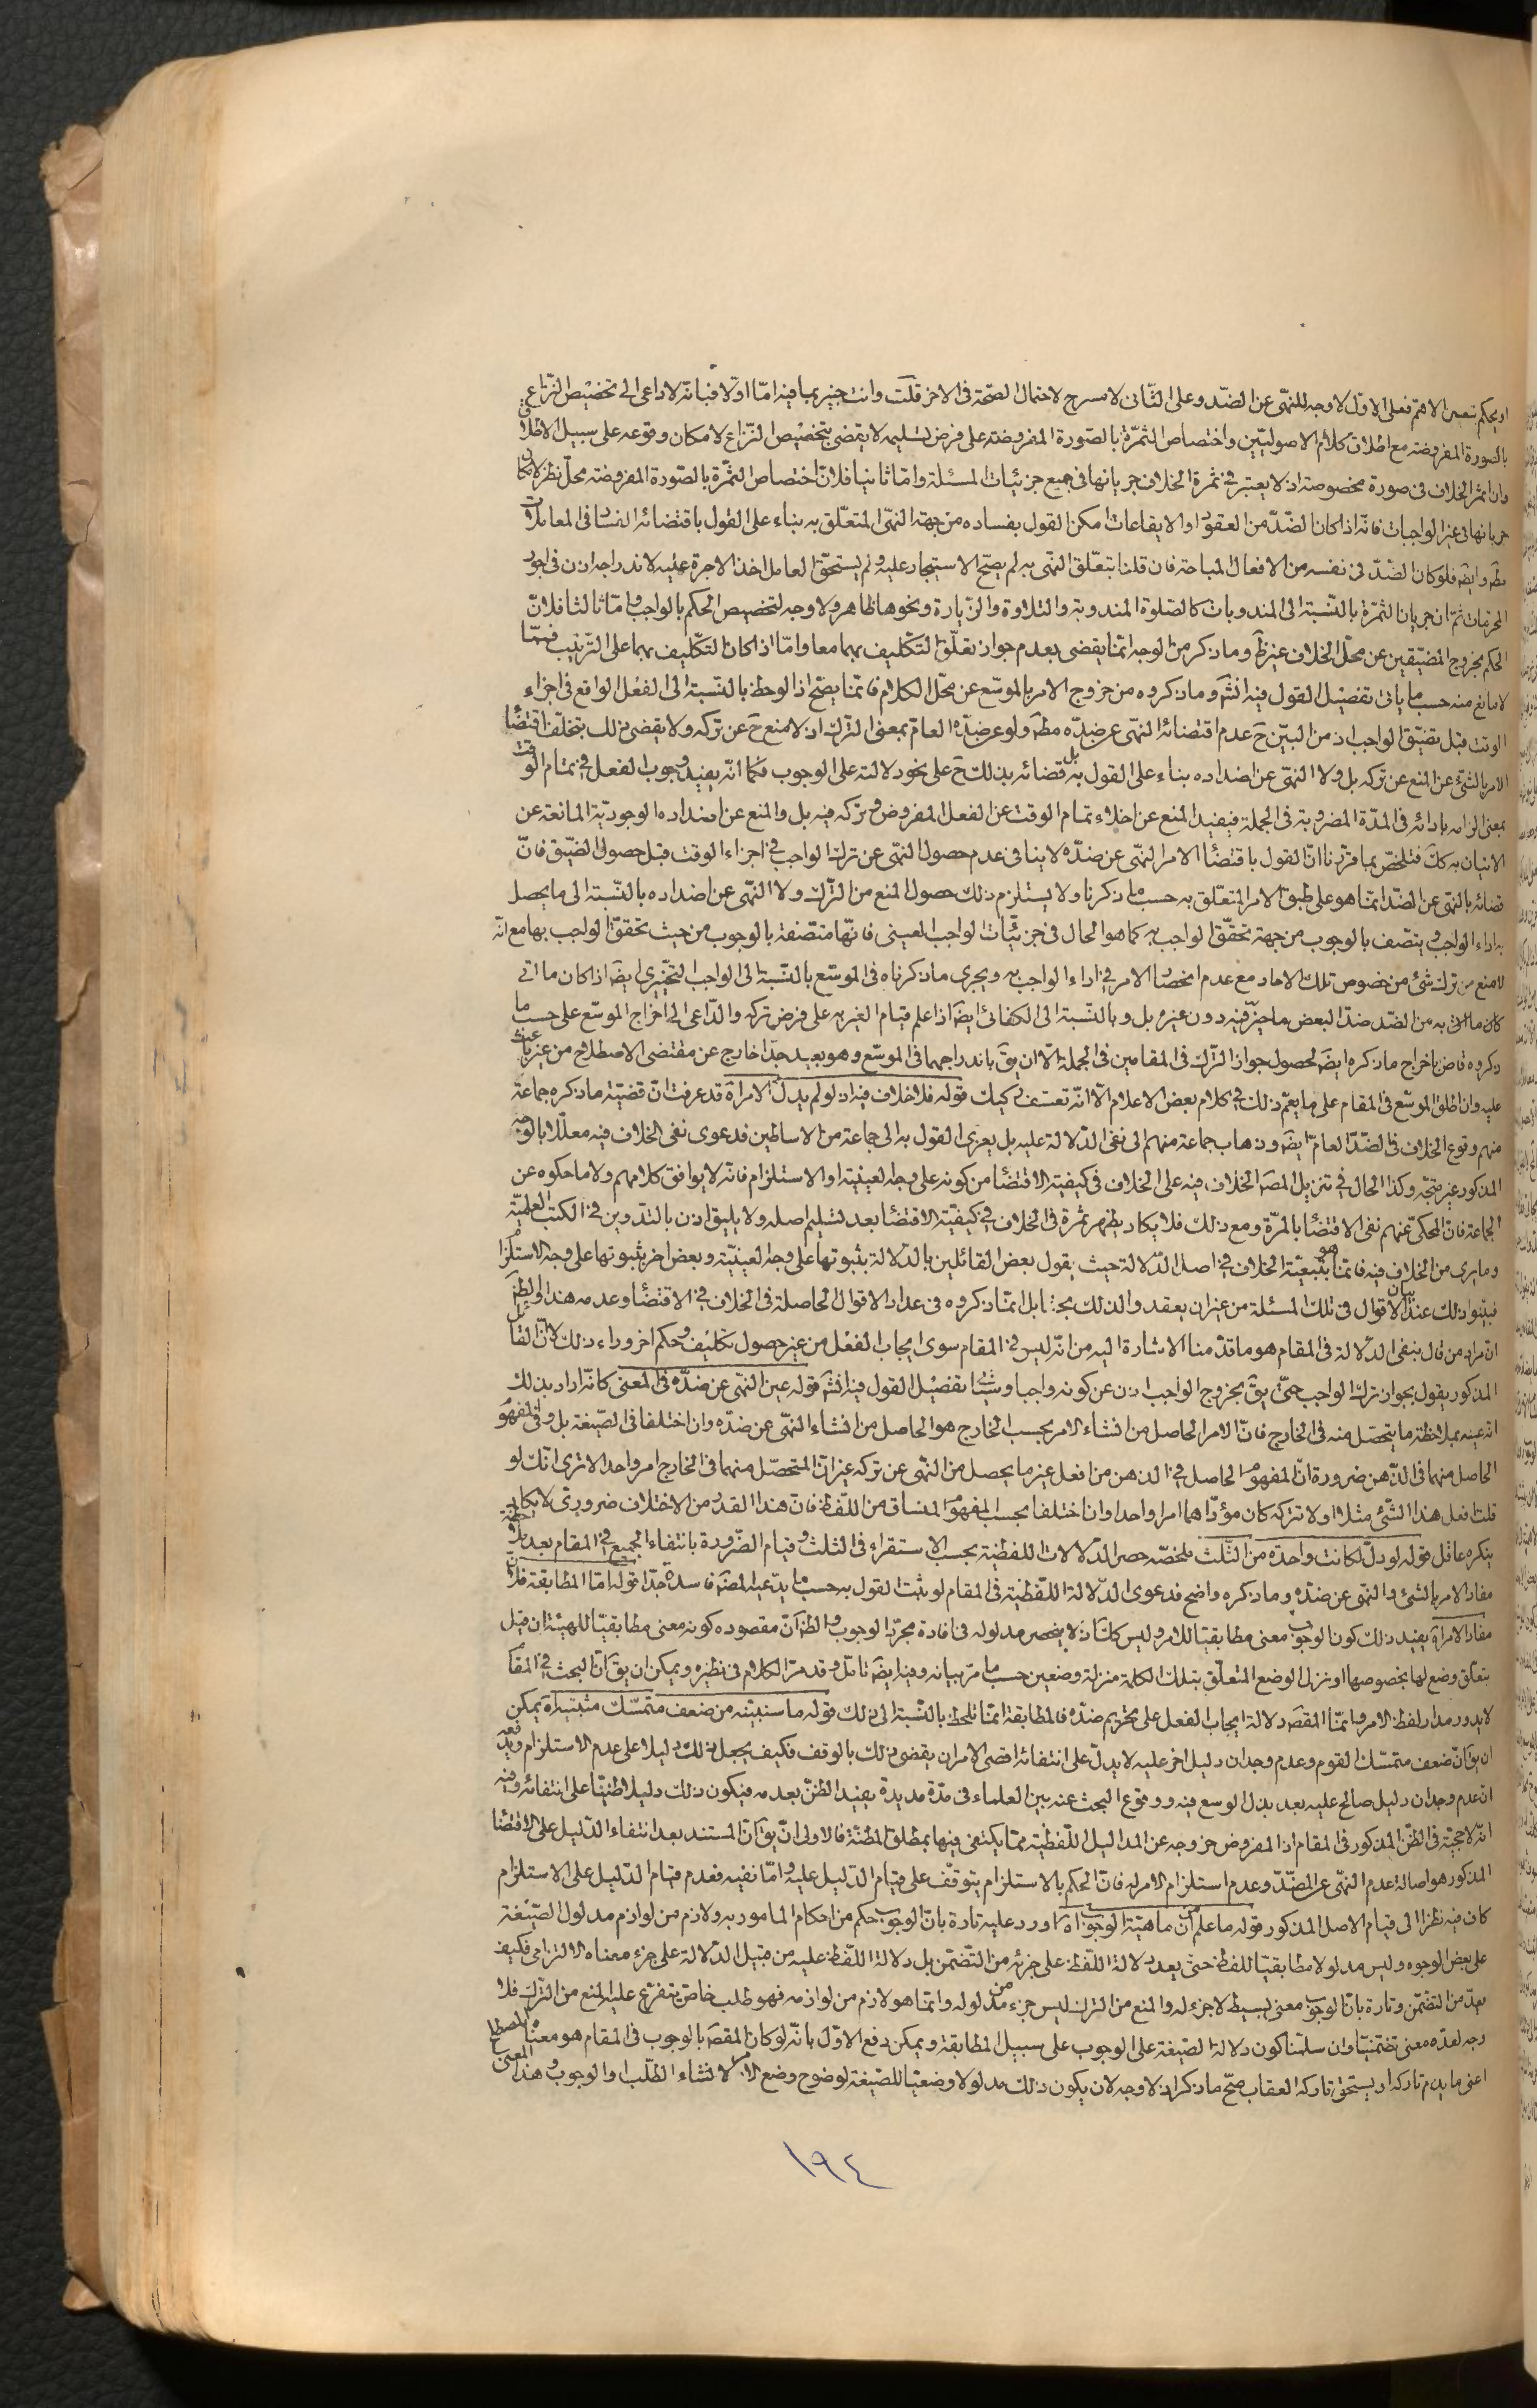 او يحكم بتعين الاهم فعلى الاول لا وجه للنهى عن الضد وعلى الثانى لا مسرح لاحتمال الصحة فى الاخر قلت وانت خبير بما فيه امّا اولا فبانّه لا داعى الى تخصيص النزاع
بالصورة المفروضة مع اطلاق كلام الاصوليّين واختصاص الثمرة بالصّورة المفروضة على فرض تسليمه لا يقضى بتخصيص النّزاع لامكان وقوعه على سبيل الاطلاق
وان اثمر الخلاف فى صورة مخصوصة اذ لا يعتبر فى ثمرة الخلاف جريانها فى جميع جزئيّات المسئلة وامّا ثانيا فلانّ اختصاص الثمرة بالصّورة المفروضة محلّ نظر لامكان
جريانها فى غير الواجبات فانّه اذا كان الضّدّ من العقود او الايقاعات امكن القول بفساده من جهة النهى المتعلّق به بناء على القول باقتضائه الفساد فى المعاملات
مطّ وايضا فلو كان الضّدّ فى نفسه من الافعال المباحة فان قلنا بتعلّق النهى به لم يصحّ الاستيجار عليه ولم يستحق العامل اخذ الاجرة عليه لاندراجه اذن فى اجور
المحرمات ثمّ ان جريان الثمرة بالنّسبة الى المندوبات كالصّلوة المندوبة والتلاوة والزّيارة ونحوها ظاهر ولا وجه لتخصيص الحكم بالواجب وامّا ثالثا فلانّ
الحكم بخروج المضيّقين عن محلّ الخلاف غير ظّ وما ذكر من الوجه انّما يقضى بعدم جواز تعلّق التّكليف بهما معا وامّا اذا كان التّكليف بهما على التّرتيب فممّا
لا مانع منه حسب ما ياتى تفصيل القول فيه انش وما ذكروه من خروج الامر بالموسّع عن محلّ الكلام فانّما يصّح اذا لوحظ بالنّسبة الى الفعل الواقع فى اجزاء
الوقت قبل تضيّق الواجب اذ من البيّن ح عدم اقتضائه النّهى عن ضدّه مطّ ولو عن ضدّه العامّ بمعنى التّرك اذ لا منع ح عن تركه ولا يقضى ذلك بتخلّف اقتضاء
الامر بالشئ عن المنع عن تركه بل ولا النهى عن اضداده بناء على القول به بل قضائه بذلك ح على نحو دلالته على الوجوب فكما انّه يفيد وجوب الفعل فى تمام الوقت
بمعنى الزامه بادائه فى المدّة المضروبة فى الجملة فيفيد المنع عن اخلاء تمام الوقت عن الفعل المفروض وتركه فيه بل والمنع عن اضداده الوجوديّة المانعة عن
الاتيان به كك فتلخّص بما قرّرنا انّ القول باقتضاء الامر النّهى عن ضدّه لا ينافى عدم حصول النّهى عن ترك الواجب فى اجزاء الوقت قبل حصول الضّيق فانّ
قضائه بالنّهى عن الضدّ انّما هو على طبق الامر المتعلّق به حسب ما ذكرنا ولا يستلزم ذلك حصول المنع من التّرك ولا النّهى عن اضداده بالنّسبة الى ما يحصل
به اداء الواجب ويتّصف بالوجوب من جهة تحقّق الواجب به كما هو الحال فى جزئيّات الواجب العينى فانّها متّصفة بالوجوب من حيث تحقق الواجب بها مع انّه
لا منع من ترك شئ من خصوص تلك الاحاد مع عدم انحصار الامر فى اداء الواجب به ويجرى ما ذكرناه فى الموسّع بالنّسبة الى الواجب التخييرى ايضا اذا كان ما اتى
كان ما اتى به من الضّد ضدّا لبعض ما خيّر فيه دون غيره بل وبالنّسبة الى الكفائى ايضا اذا علم قيام الغير به على فرض تركه والدّاعى الى اخراج الموسّع على حسب ما
ذكروه قاض باخراج ما ذكره ايضا لحصول جواز التّرك فى المقامين فى الجملة الّا ان يقّ باندراجهما فى الموسّع وهو بعيد جدّا خارج عن مقتضى الاصطلاح من غير باعث
عليه وان اطلق الموسّع فى المقام على ما يعمّ ذلك فى كلام بعض الاعلام الّا انّه تعسّف ركيك قوله فلا خلاف فيه اذ لو لم يدلّ الامر اه قد عرفت انّ قضيّة ما ذكره جماعة
منهم وقوع الخلاف فى الضّدّ العامّ ايضا وذهاب جماعة منهم الى نفى الدّلالة عليه بل يعزى القول به الى جماعة من الاساطين فدعوى نفى الخلاف فيه معلّلا بالوجه
المذكور غير متّجه وكذا الحال فى تنزيل المصّ الخلاف فيه على الخلاف فى كيفيّة الاقتضاء من كونه على وجه العينيّة او الاستلزام فانّه لا يوافق كلامهم ولا ما حكوه عن
الجماعة فانّ المحكى عنهم نفى الاقتضاء بالمرّة ومع ذلك فلا يكاد يظهر ثمرة فى الخلاف فى كيفيّة الاقتضاء بعد تسليم اصله ولا يليق اذن بالتّدوين فى الكتب العلميّة
وما يرى من الخلاف فيه فانّما هو بتبعيّة الخلاف فى اصل الدّلالة حيث يقول بعض القائلين بالدّلالة بثبوتها على وجه العينيّة وبعض اخر بثبوتها على وجه الاستلزام
فبيّنوا ذلك عند بيان الاقوال فى تلك المسئلة من غير ان يعقدوا لذلك بحثا بل انّما ذكروه فى عداد الاقوال الحاصلة فى الخلاف فى الاقتضاء وعدمه هذا والظّ
انّ مراد من قال بنفى الدّلالة فى المقام هو ما قدّمنا الاشارة اليه من انّه ليس فى المقام سوى ايجاب الفعل من غير حصول تكليف وحكم اخر وراء ذلك لا انّ القائل
المذكور يقول بجواز ترك الواجب حتّى يقّ بخروج الواجب اذن عن كونه واجبا وسيأتى تفصيل القول فيه انش قوله عين النّهى عن ضدّه فى المعنى كانّه اراد بذلك
انّه عينه بملاحظة ما يتحصّل منه فى الخارج فانّ الامر الحاصل من انشاء الامر بحسب الخارج هو الحاصل من انشاء النّهى عن ضدّه وان اختلفا فى الصّيغة بل وفى المفهوم
الحاصل منهما فى الذّهن ضرورة انّ المفهوم الحاصل فى الذهن من افعل غير ما يحصل من النّهى عن تركه غير انّ المتحصّل منهما فى الخارج امر واحد الا ترى انّك لو
قلت افعل هذا الشّئ مثلا او لا تتركه كان مؤدّاهما امرا واحدا وان اختلفا بحسب المفهوم المنساق من اللّفظ فانّ هذا القدر من الاختلاف ضرورىّ لا يكاد
ينكره عاقل قوله لو دلّ لكانت واحدة من الثّلث ملخّصه حصر الدّلالات اللفظيّة بحسب الاستقراء فى الثلث وقيام الضّرورة بانتفاء الجميع فى المقام بعد ملاحظة
مفاد الامر بالشئ والنّهى عن ضدّه وما ذكره واضح فدعوى الدّلالة اللّفظيّة فى المقام لو ثبت القول به حسب ما يدّعيه المصّ فاسدة جدّا قوله امّا المطابقة فلانّ
مفاد الامر اه يفيد ذلك كون الوجوب معنى مطابقيّا للامر وليس كك اذ لا ينحصر مدلوله فى افادة مجرّد الوجوب والظّ انّ مقصوده كونه معنى مطابقيّا للهيئة ان قيل
بتعلّق وضع لها بخصوصها او بنزّل الوضع المتعلّق بتلك الكلمة منزلة وضعين حسب ما مرّ بيانه وفيه ايضا تامّل وقد مرّ الكلام فى نظيره ويمكن ان يقّ انّ البحث فى المقام
لا يدور مدار لفظ الامر وانّما المقصّ دلالة ايجاب الفعل على تحريم ضدّه فالمطابقة انّما تلحظ بالنّسبة الى ذلك قوله ما سنبيّنه من ضعف متمسّك مثبتيه اه يمكن
ان يقّ انّ ضعف متمسّك القوم وعدم وجدان دليل اخر عليه لا يدلّ على انتفائه اقصى الامر ان يقضى ذلك بالوقف فكيف يجعل ذلك دليلا على عدم الاستلزام ويدفعه
انّ عدم وجدان دليل صالح عليه بعد بذل الوسع فيه ووقوع البحث عنه بين العلماء فى مدّة مديدة يفيد الظّنّ بعدمه فيكون ذلك دليلا ظنيّا على انتفائه وفيه
انّه لا حجّية فى الظّنّ المذكور فى المقام اذ المفروض خروجه عن المداليل اللّفظيّة ممّا يكتفى فيها بمطلق المظنّة فالاولى ان يقّ انّ المستند بعد انتفاء الدّليل على الاقتضاء
المذكور هو اصالة عدم النّهى عن الضّدّ وعدم استلزام الامر له فانّ الحكم بالاستلزام يتوقّف على قيام الدّليل عليه وامّا نفيه فعدم قيام الدّليل على الاستلزام
كاف فيه نظرا الى قيام الاصل المذكور قوله ما علم من انّ ماهيّة الوجوب اه اورد عليه تارة بانّ الوجوب حكم من احكام المامور به ولازم من لوازم مدلول الصّيغة
على بعض الوجوه وليس مدلولا مطابقيّا للّفظ حتّى يعد دلالة اللّفظ على جزئه من التّضمّن بل دلالة اللّفظ عليه من قبيل الدّلالة على جزء معناه الالتزامى فكيف
يعدّ من التضمّن وتارة بانّ الوجوب معنى بسيط لا جزء له والمنع من الترك ليس جزء من مدلوله وانّما هو لازم من لوازمه فهو طلب خاصّ يتفرّع عليه المنع من التّرك فلا
وجه لعدّه معنى تضمّنيّا وان سلّمنا كون دلالة الصّيغة على الوجوب على سبيل المطابقة ويمكن دفع الاوّل بانّه لو كان المقصّ بالوجوب فى المقام هو معناه المصطلح
اعنى ما يذم تاركه او يستحق تاركه العقاب صحّ ما ذكر اذ لا وجه لان يكون ذلك مدلولا وضعيّا للصّيغة لوضوح وضع الامر لانشاء الطّلب والوجوب بهذا المعنى
١٩٤